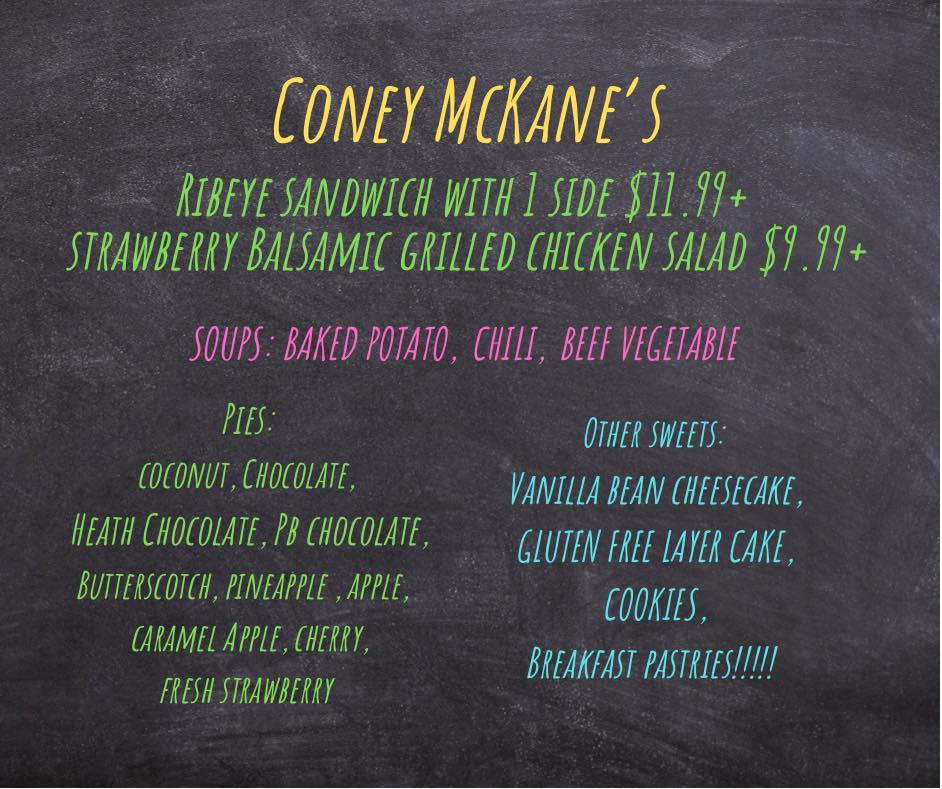 Coney McKane's
Ribeye sandwich with 1 side $11.99+
strawberry Balsamic grilled chicken salad $9.99+
soups: baked potato, chili, beef vegetable
Pies:
coconut, Chocolate,
Heath Chocolate, Pb chocolate,
Butterscotch, pineapple , apple,
caramel Apple, cherry,
fresh strawberry
Other sweets:
Vanilla bean cheesecake,
gluten free layer cake,
cookies,
Breakfast pastries!!!!!